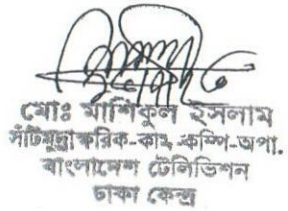 মোঃ মাশিকুল ইসলাম
সাঁটমুদ্রাক্ষরিক-কাম-কম্পি-অপা.
বাংলাদেশ টেলিভিশন
ঢাকা কেন্দ্র